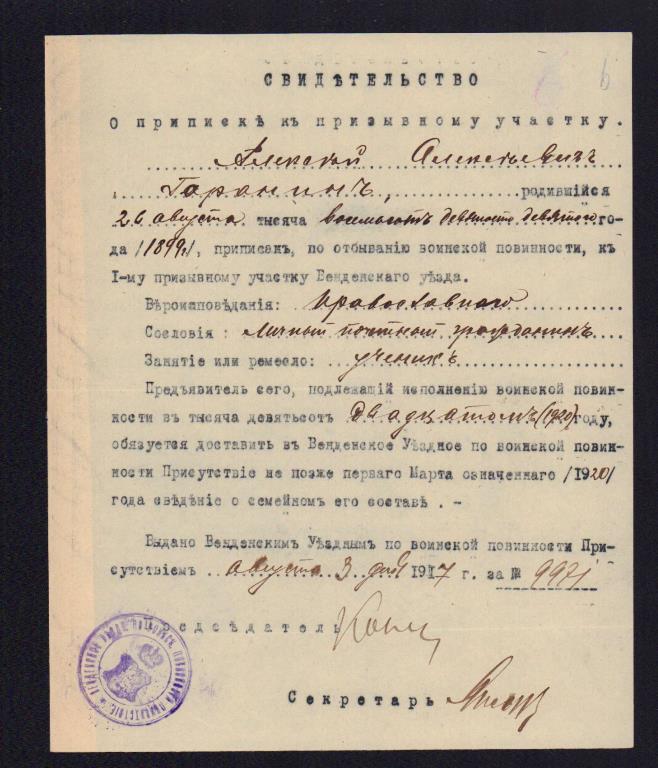 СВИДѢТЕЛЬСТВО
О припискѣ къ призывному участку.
Алексѣй Алексѣевичъ
Гаранинъ, родившійся
26 августа тысяча восемьсотъ девяносто девятаго го-
да /1899г/, приписанъ, по отбыванію воинской повинности, къ
I-му призывному участку Венденскаго уѣзда.
Вѣроисповѣданія: православнаго
Сословія: личный почетный гражданинъ
Занятіе или ремесло: ученикъ
Предъявитель сего, подлежащій исполненію воинской повин-
ности въ тысяча девятьсотъ двадцатомъ (1920) году,
обязуется доставить въ Венденское Уѣздное по воинской повин-
ности Присутствіе не позже перваго Марта означеннаго /1920/
года свѣдѣніе о семейномъ его составѣ. -
Выдано Венденскимъ Уѣзднымъ по воинской повинности При-
сутствіемъ августа 3 дня 1917 г. за № 9971
Предсѣдатель
Секретарь